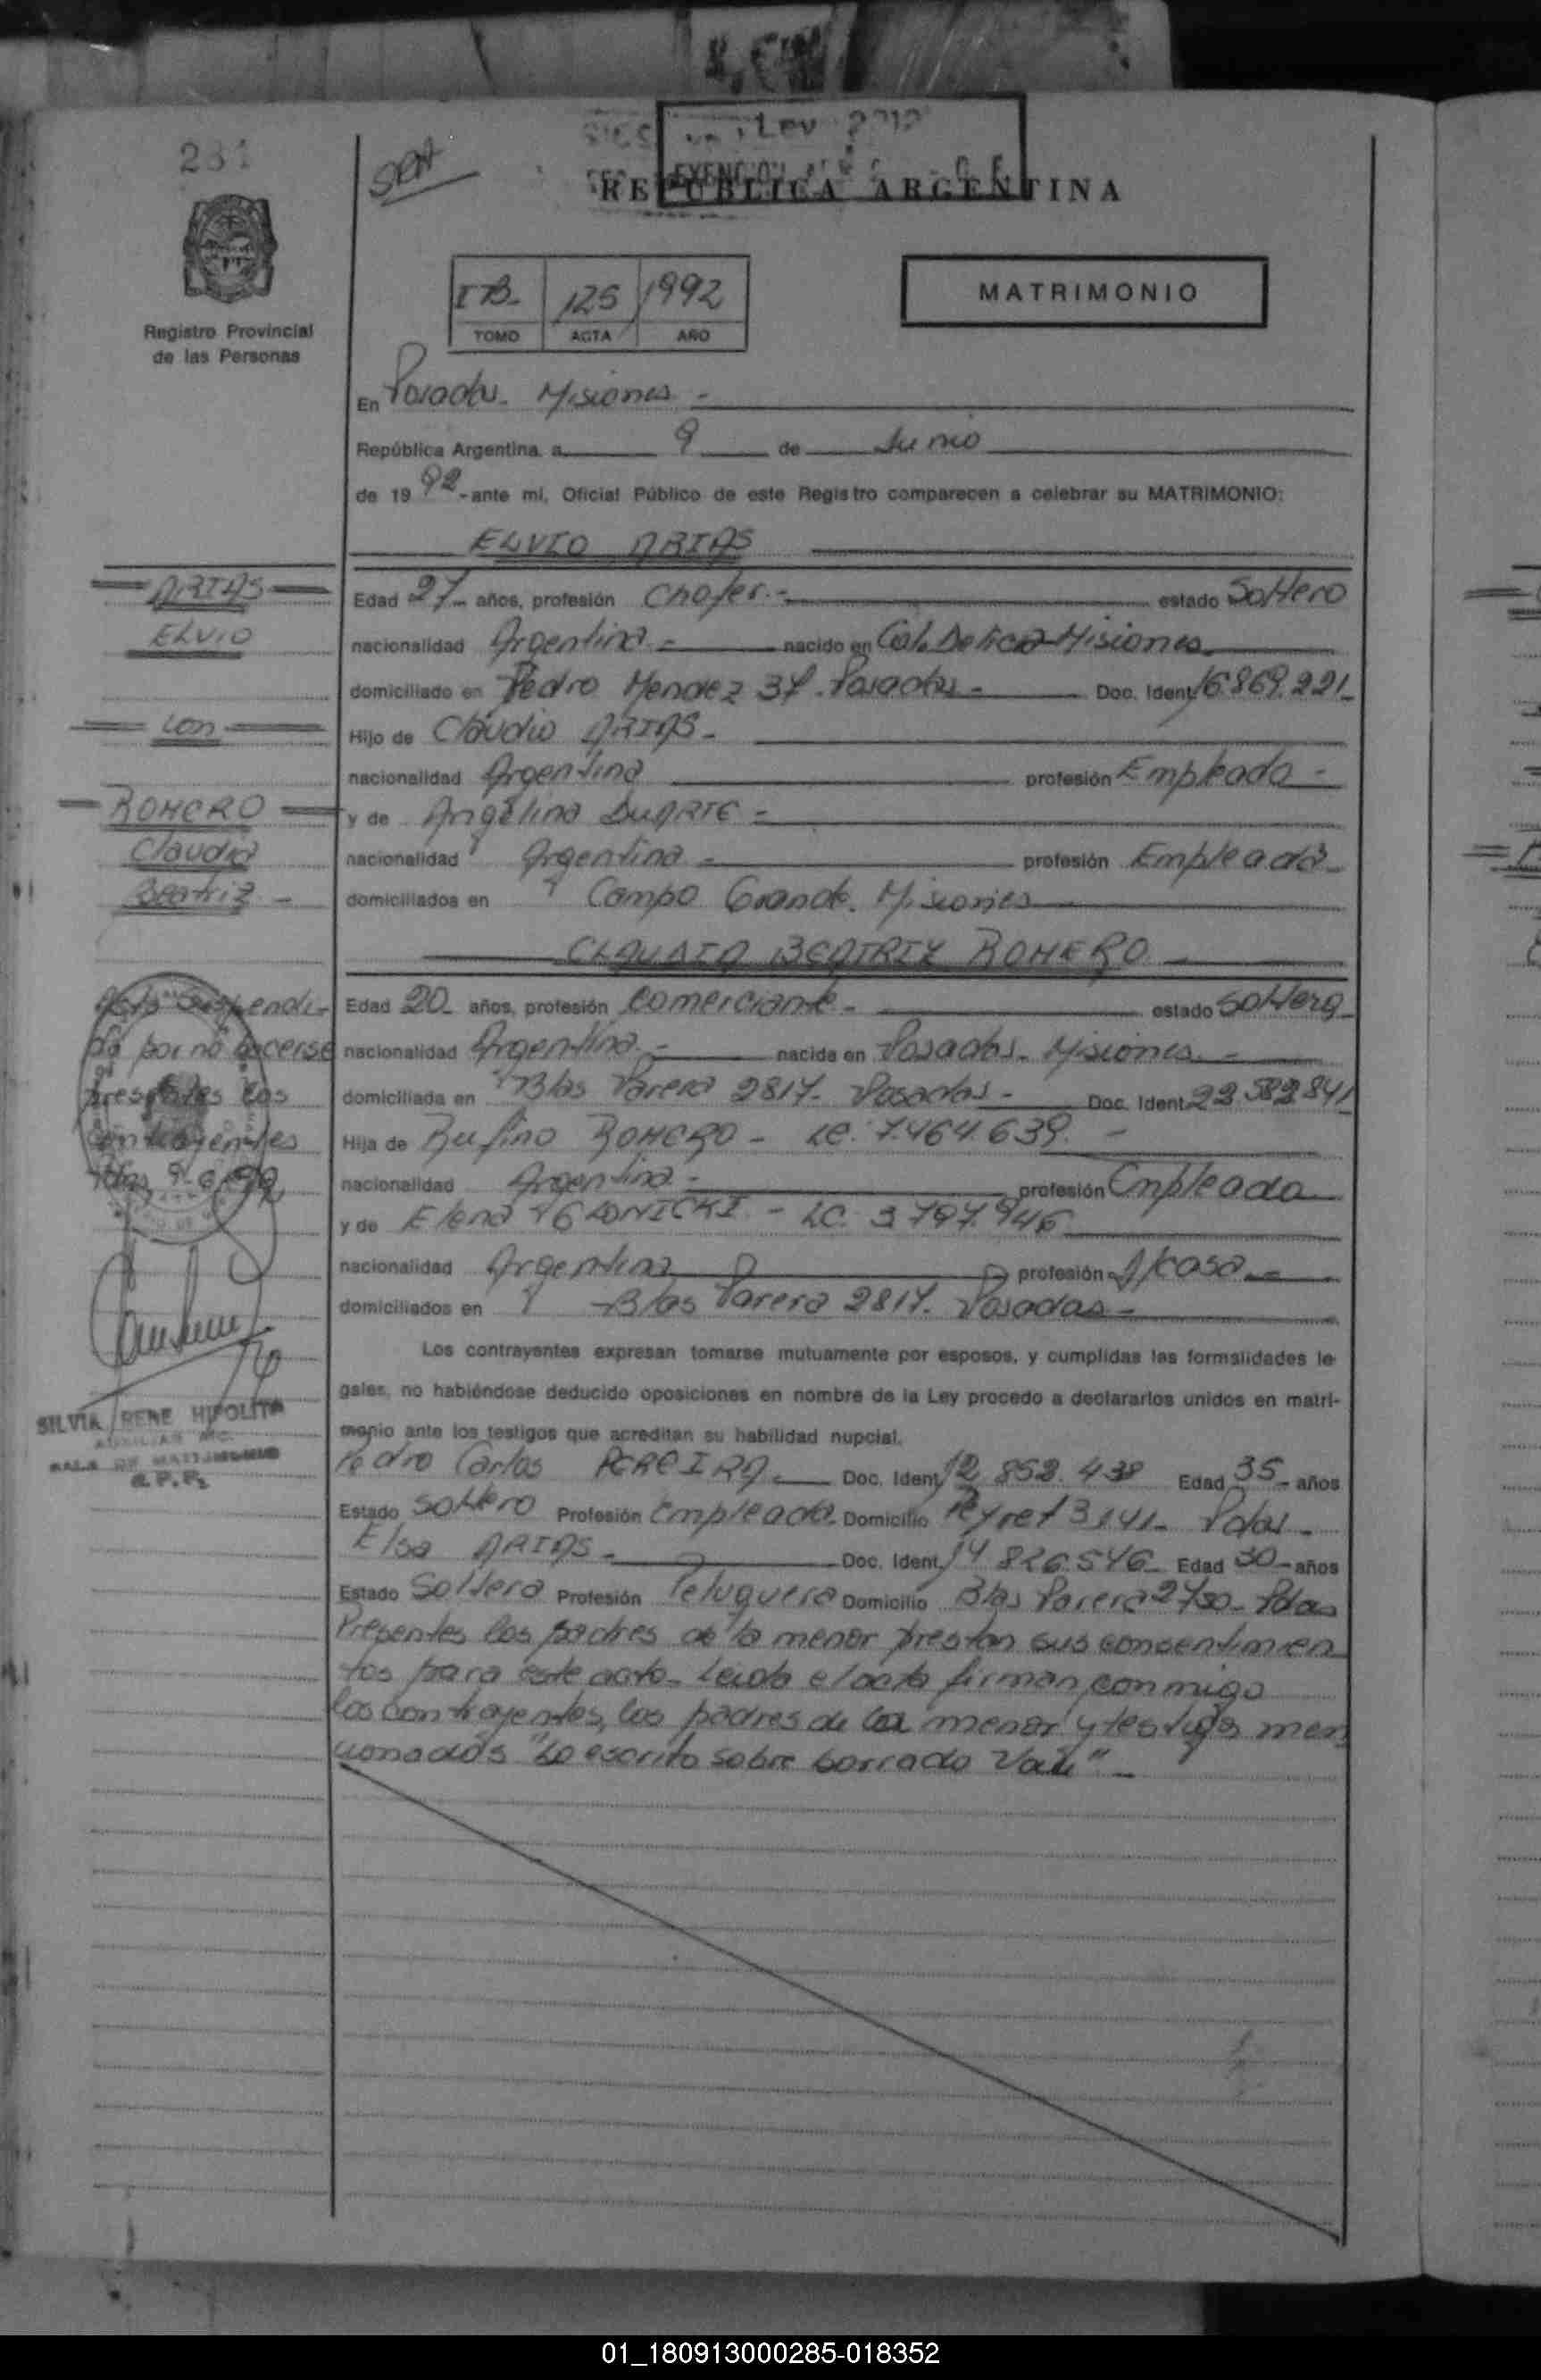 231
SEA
Ley
EXENCION
REPUBLICA ARGENTINA
Registro Provincial
de las Personas
I B- 125 1992
TOMO ACTA AÑO
MATRIMONIO
En Posadas- Misiones -
República Argentina, a 9 de Junio
de 19 92 - ante mí, Oficial Público de este Registro comparecen a celebrar su MATRIMONIO:
ELVIO ARIAS
Edad 27- años, profesión Chofer.- estado Soltero
nacionalidad Argentina - nacido en Col. Delicia-Misiones
domiciliado en Pedro Mendez 37-Posadas - Doc. Ident. 16.869.221-
Hijo de Claudio ARIAS -
nacionalidad Argentina profesión Empleado -
y de Angelina DUARTE -
nacionalidad Argentina - profesión Empleada -
domiciliados en Campo Grande. Misiones
CLAUDIA BEATRIZ ROMERO -
Edad 20- años, profesión Comerciante - estado Soltera-
nacionalidad Argentina - nacida en Posadas- Misiones -
domiciliada en Blas Parera 2817- Posadas - Doc. Ident. 22.582.841
Hija de Rufino ROMERO - LE. 7.464.639. -
nacionalidad Argentina - profesión Empleado
y de Elena - LC. 3.797.946
nacionalidad Argentina profesión A/casa -
domiciliados en Blas Parera 2817- Posadas -
Los contrayentes expresan tomarse mutuamente por esposos, y cumplidas las formalidades le-
gales, no habiéndose deducido oposiciones en nombre de la Ley procedo a declararlos unidos en matri-
monio ante los testigos que acreditan su habilidad nupcial.
Pedro Carlos PEREIRA - Doc. Ident. 12.852.438 Edad 35- años
Estado Soltero Profesión Empleado. Domicilio Peyret 3141- Pdas-
Elsa ARIAS - Doc. Ident. 14.826.546- Edad 30- años
Estado Soltera Profesión Peluquera Domicilio Blas Parera 2750- Pdas
Presentes los padres de la menor prestan sus consentimien
tos para este acto- Leida el acta firman conmigo
los contrayentes, los padres de la menor y testigos men
cionados "Lo escrito sobre borrado Vale" -
ARIAS
ELVIO
con
ROMERO
Claudia
Beatriz -
Acta suspendi-
da por no hacerse
presentes los
contrayentes
Pdas 9-6-92
SILVIA IRENE HIPOLITA
AUXILIAR
SALA DE MATRIMONIO
R.P.P.
01_180913000285-018352